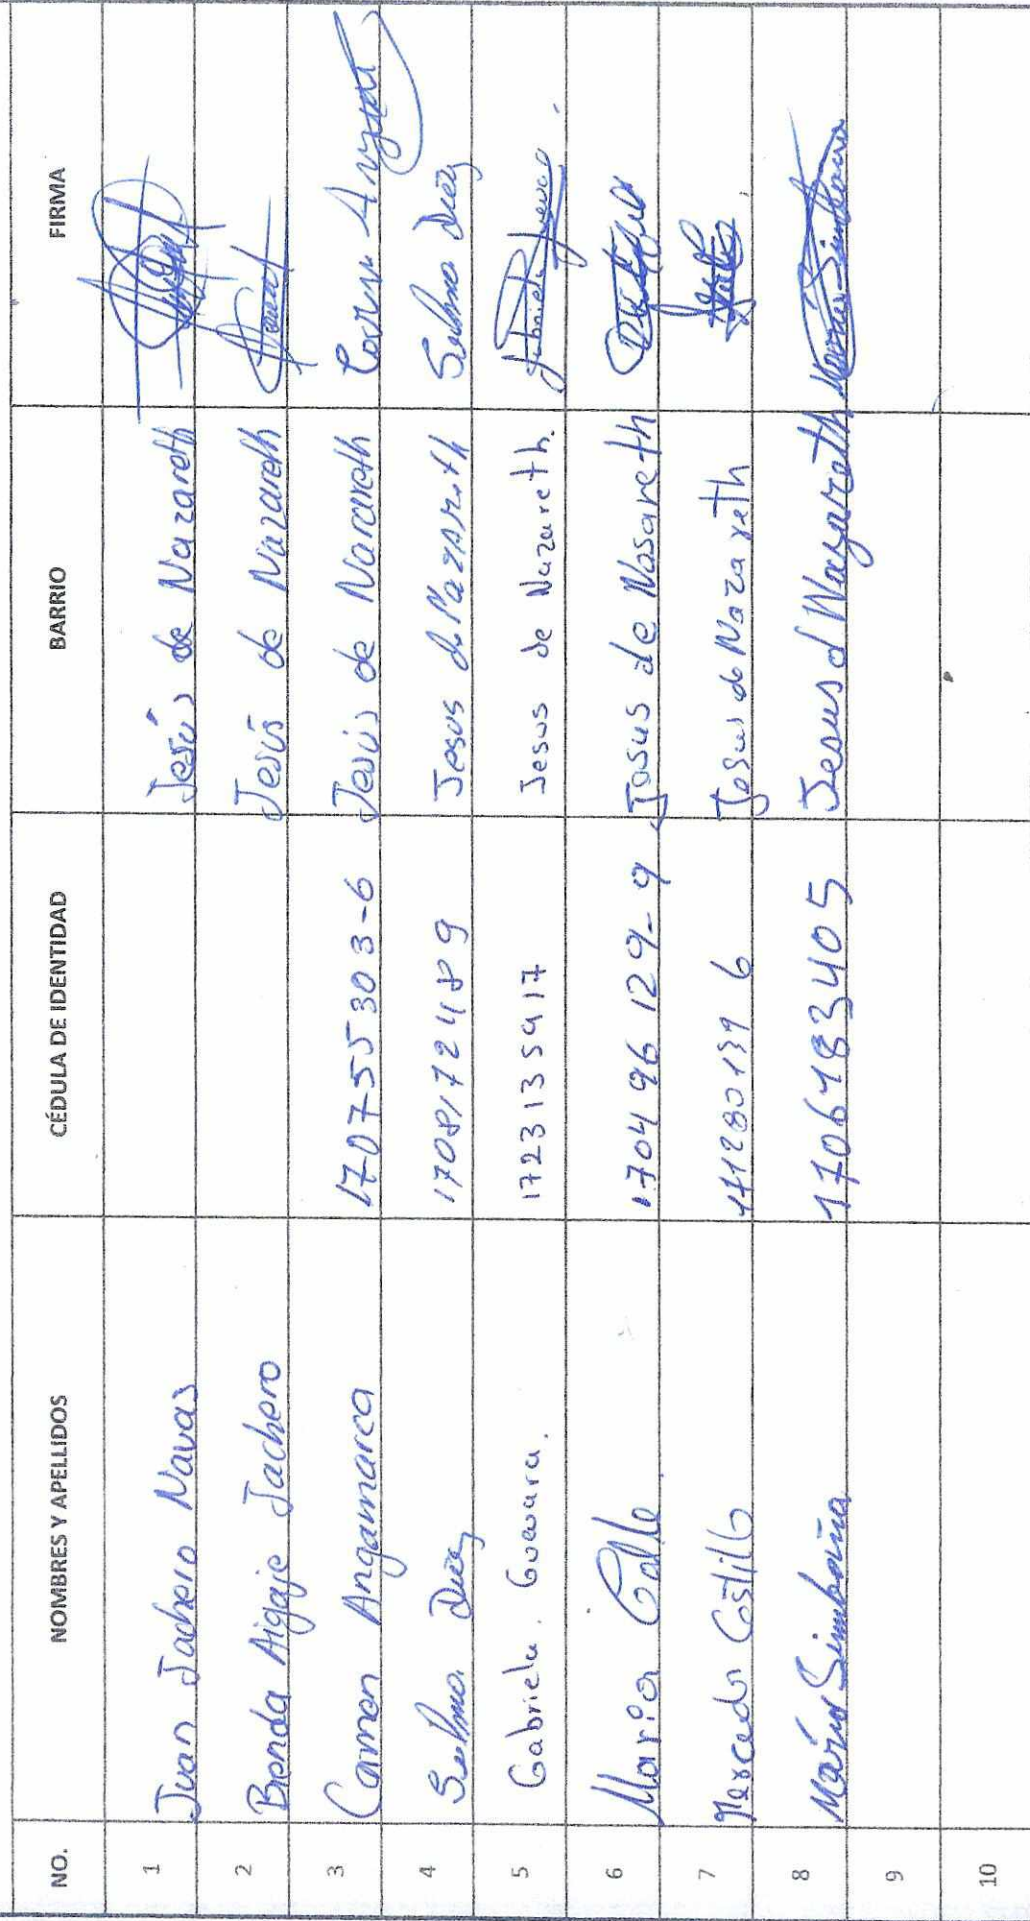 NO. NOMBRES Y APELLIDOS CÉDULA DE IDENTIDAD BARRIO FIRMA
1 Juan Tachero Navas Jesús de Nazareth
2 Brenda Aigaje Tachero Jesús de Nazareth
3 Carmen Angamarca 170755303-6 Jesús de Nazareth
4 Selma Diez 1708172489 Jesus de Nazareth Selma Diez
5 Gabriela. Guevara. 1723135917 Jesus de Nazareth.
6 Maria Calle 170496129-9 Jesus de Nasareth
7 Mercedes Castillo 171280139 6 Jesus de Nazareth
8 María Simbaña 1706183405 Jesus d Nazareth
9
10